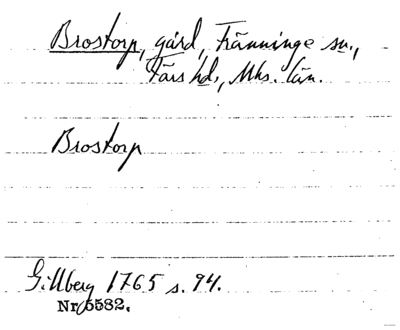 Brostorp, gård, Tränninge sn.,
Färs hd, Mhs. län.
Brostorp
Gillberg 1765 s. 94.
Nr 5582.